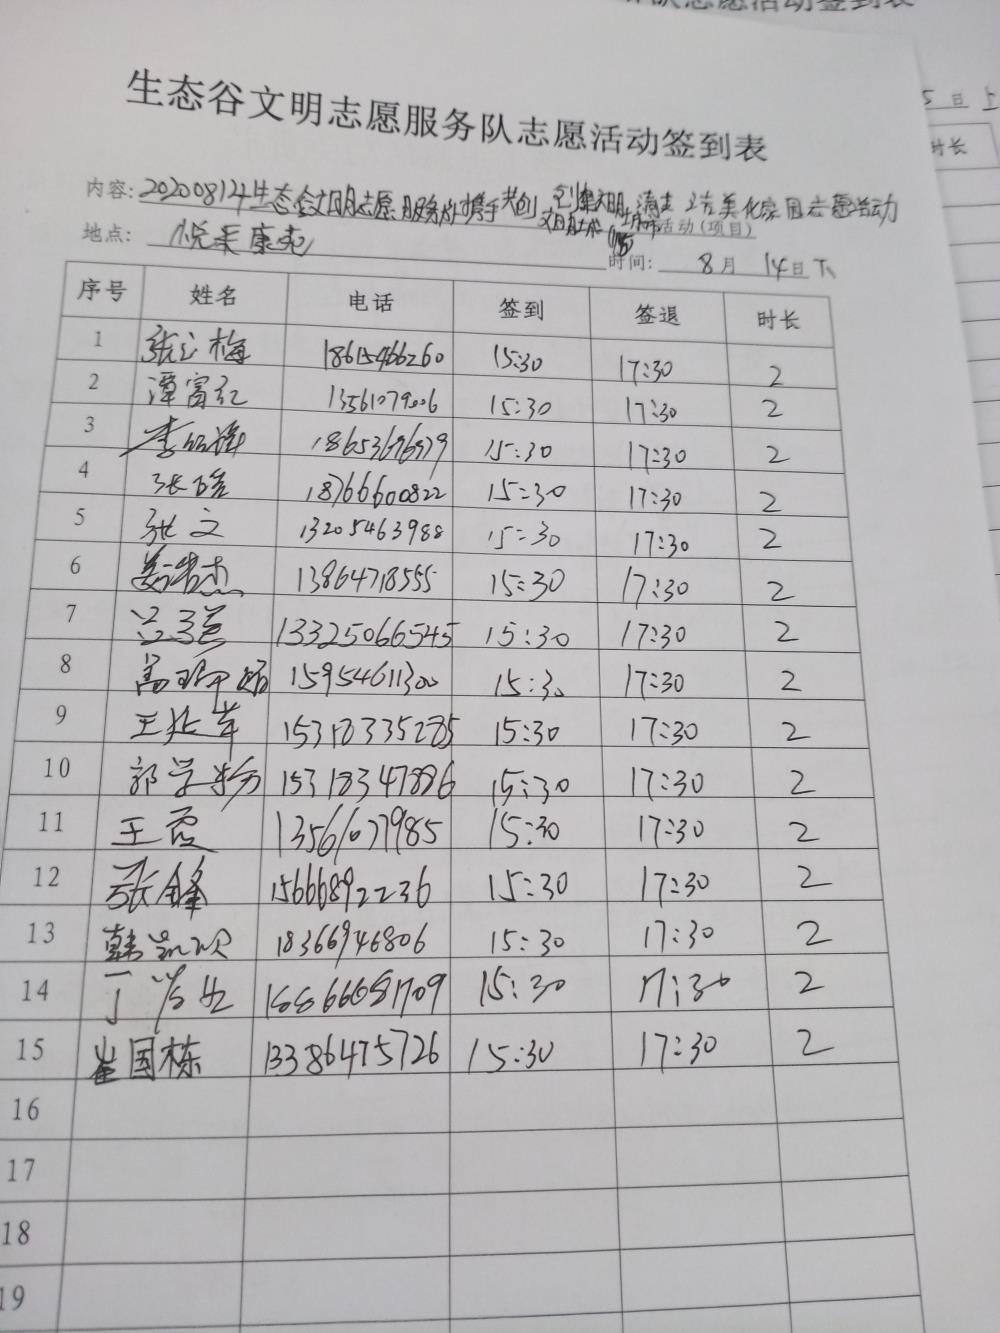 生态谷文明志愿服务队志愿活动签到表
5日上
时长
内容: 20200814生态谷文明志愿服务队携手共创 文明城市 清支 洁美化家园志愿活动
活动(项目)
地点: 悦来康苑
时间: 8月14日下
序号 姓名 电话 签到 签退 时长
1 张 梅 18615466260 15:30 17:30 2
2 谭富红 13561079006 15:30 17:30 2
3 李 18653696979 15:30 17:30 2
4 张 18766600822 15:30 17:30 2
5 张文 13205463988 15:30 17:30 2
6 杰 13864718555 15:30 17:30 2
7 13325066545 15:30 17:30 2
8 15954611300 15:30 17:30 2
9 王 15318335285 15:30 17:30 2
10 郭学 15318347886 15:30 17:30 2
11 王霞 13561077985 15:30 17:30 2
12 张锋 15666892236 15:30 17:30 2
13 韩凯 18366946806 15:30 17:30 2
14 丁 15:30 17:30 2
15 崔国栋 13386475726 15:30 17:30 2
16
17
18
19